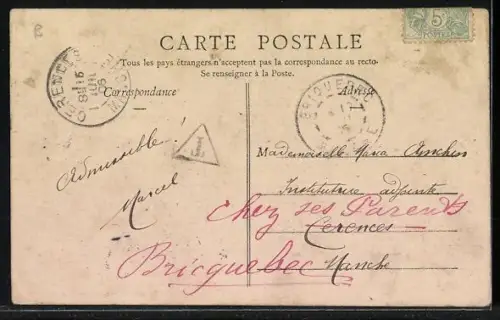 B
CARTE POSTALE
Tous les pays étrangers n'acceptent pas la correspondance au recto.
Se renseigner à la Poste.
Correspondance
Adresse
CERENCES
MANCHE
BRICQUEBEC
5c
POSTES
Admissible!
Marcel
Mademoiselle Maria
Institutrice adjointe
Chez ses Parents
Cerences
Bricquebec Manche